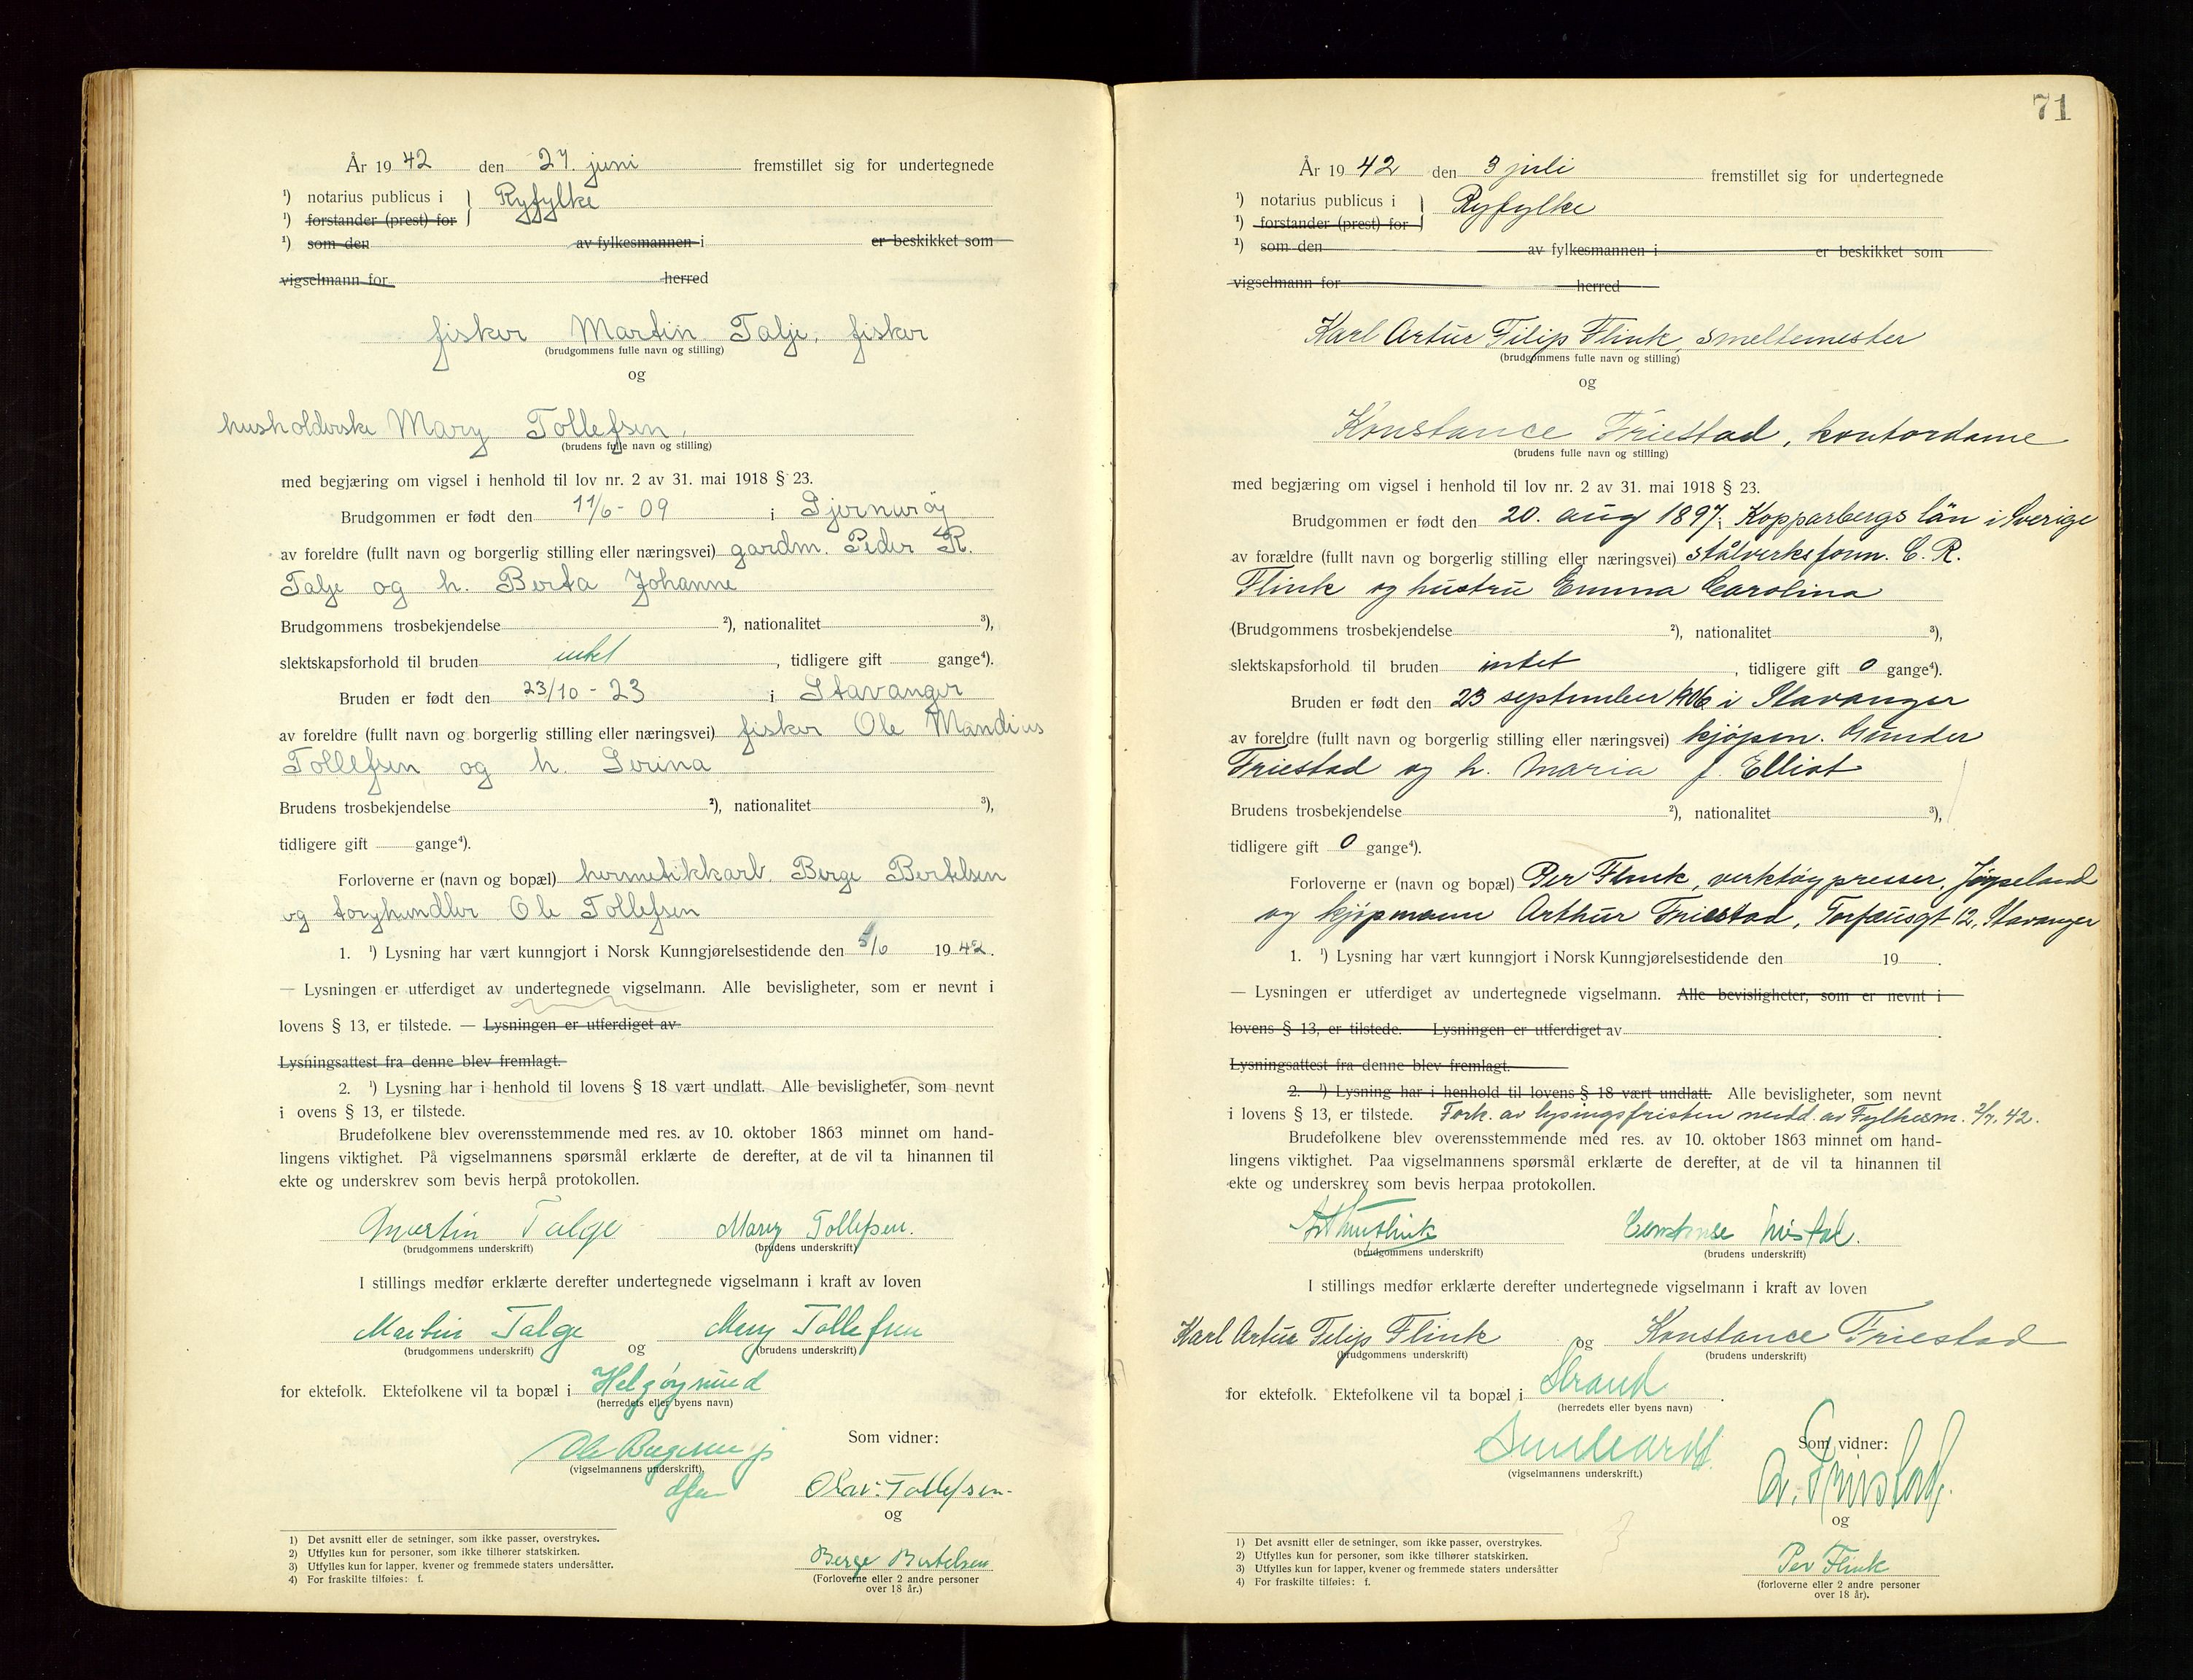 År 19 42 den 27. juni fremstillet sig for undertegnede
¹) notarius publicus i } Ryfylke
¹) forstander (prest) for
¹) som den av fylkesmannen i er beskikket som
vigselmann for herred
fisker Martin Talje, fisker
(brudgommens fulle navn og stilling)
og
husholderske Mary Tollefsen,
(brudens fulle navn og stilling)
med begjæring om vigsel i henhold til lov nr. 2 av 31. mai 1918 § 23.
Brudgommen er født den 11/6 - 09 i Sjernarøy
av foreldre (fullt navn og borgerlig stilling eller næringsvei) gardm. Peder R.
Talje og h. Berta Johanne
Brudgommens trosbekjendelse ²), nationalitet ³),
slektskapsforhold til bruden intet, tidligere gift gange⁴).
Bruden er født den 23/10 - 23 i Stavanger
av foreldre (fullt navn og borgerlig stilling eller næringsvei) fisker Ole Mandius
Tollefsen og h. Serina
Brudens trosbekjendelse ²), nationalitet ³),
tidligere gift gange⁴).
Forloverne er (navn og bopæl) hermetikkarb. Berge Bertelsen
og torghandler Ole Tollefsen
1. ¹) Lysning har vært kunngjort i Norsk Kunngjørelsestidende den 5/6 19 42.
— Lysningen er utferdiget av undertegnede vigselmann. Alle bevisligheter, som er nevnt i
lovens § 13, er tilstede. — Lysningen er utferdiget av
Lysningsattest fra denne blev fremlagt.
2. ¹) Lysning har i henhold til lovens § 18 vært undlatt. Alle bevisligheter, som nevnt
i ovens § 13, er tilstede.
Brudefolkene blev overensstemmende med res. av 10. oktober 1863 minnet om hand-
lingens viktighet. På vigselmannens spørsmål erklærte de derefter, at de vil ta hinannen til
ekte og underskrev som bevis herpå protokollen.
Martin Talge Mary Tollefsen.
(brudgommens underskrift) (brudens underskrift)
I stillings medfør erklærte derefter undertegnede vigselmann i kraft av loven
Martin Talge og Mary Tollefsen
(brudgommens underskrift) (brudens underskrift)
for ektefolk. Ektefolkene vil ta bopæl i Helgøysund
(herredets eller byens navn)
Som vidner:
(vigselmannens underskrift)
Olav Tollefsen
og
Berge Bertelsen
(Forloverne eller 2 andre personer
over 18 år.)
1) Det avsnitt eller de setninger, som ikke passer, overstrykes.
2) Utfylles kun for personer, som ikke tilhører statskirken.
3) Utfylles kun for lapper, kvener og fremmede staters undersåtter.
4) For fraskilte tilføies: f.
71
År 19 42 den 3 juli fremstillet sig for undertegnede
¹) notarius publicus i } Ryfylke
¹) forstander (prest) for
¹) som den av fylkesmannen i er beskikket som
vigselmann for herred
Karl Artur Filip Flink, smeltemester
(brudgommens fulle navn og stilling)
og
Konstance Friestad, kontordame
(brudens fulle navn og stilling)
med begjæring om vigsel i henhold til lov nr. 2 av 31. mai 1918 § 23.
Brudgommen er født den 20. aug 1897 i Kopparbergs län i Sverige
av forældre (fullt navn og borgerlig stilling eller næringsvei) stålverksform. C. R.
Flink og hustru Emma Carolina
(Brudgommens trosbekjendelse ²), nationalitet ³),
slektskapsforhold til bruden intet, tidligere gift 0 gange⁴).
Bruden er født den 23 september 1906 i Stavanger
av foreldre (fullt navn og borgerlig stilling eller næringsvei) kjøpm. Gunder
Friestad og h. Maria f. Elliot
Brudens trosbekjendelse ²), nationalitet ³),
tidligere gift 0 gange⁴).
Forloverne er (navn og bopæl) Per Flink, verktøypresser, Jøpseland
og kjøpmann Arthur Friestad, Torfæusgt 12, Stavanger
1. ¹) Lysning har vært kunngjort i Norsk Kunngjørelsestidende den 19 .
— Lysningen er utferdiget av undertegnede vigselmann. Alle bevisligheter, som er nevnt i
lovens § 13, er tilstede. Lysningen er utferdiget av .
Lysningsattest fra denne blev fremlagt.
2. ¹) Lysning har i henhold til lovens § 18 vært undlatt. Alle bevisligheter, som nevnt
i lovens § 13, er tilstede. Fork. av lysingsfristen medd. av Fylkesm. 2/7. 42.
Brudefolkene blev overensstemmende med res. av 10. oktober 1863 minnet om hand-
lingens viktighet. Paa vigselmannens spørsmål erklærte de derefter, at de vil ta hinannen til
ekte og underskrev som bevis herpaa protokollen.
Arthur Flink Constanse Fristad.
(brudgommens underskrift) (brudens underskrift)
I stillings medfør erklærte derefter undertegnede vigselmann i kraft av loven
Karl Artur Filip Flink og Konstance Friestad
(brudgommens underskrift) (brudens underskrift)
for ektefolk. Ektefolkene vil ta bopæl i Strand.
(herredets eller byens navn)
Som vidner:
(vigselmannens underskrift.)
A. Friestad.
og
Per Flink
(forloverne eller 2 andre personer
over 18 år).
1) Det avsnitt eller de setninger, som ikke passer, overstrykes.
2) Utfylles kun for personer, som ikke tilhører statskirken.
3) Utfylles kun for lapper, kvener og fremmede staters undersåtter
4) For fraskilte tilføies: f.